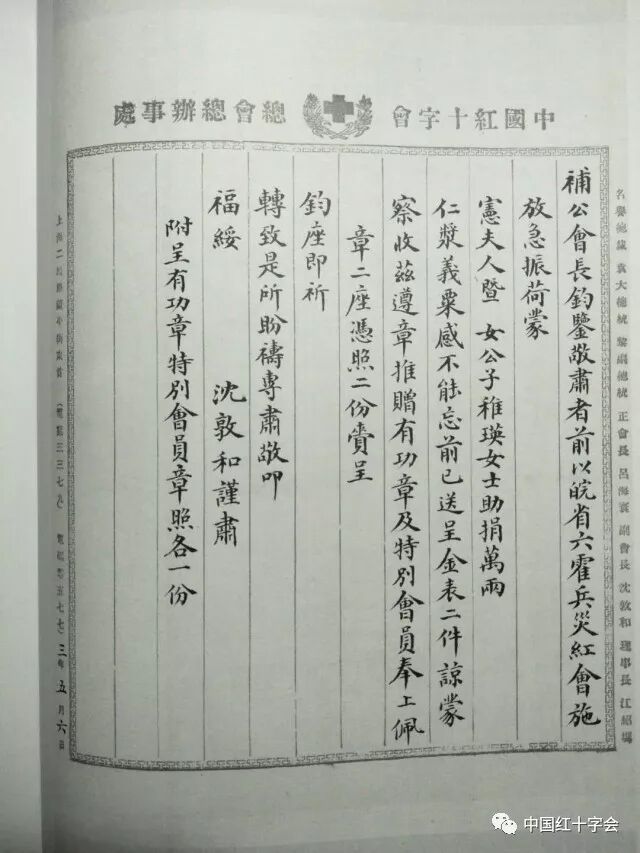 中國紅十字會 總會總辦事處
名譽總裁 袁大總統 黎副總統 正會長 呂海寰 副會長 沈敦和 理事長 江紹墀
補公會長鈞鑒敬肅者前以皖省六霍兵災紅會施
放急振荷蒙
憲夫人暨 女公子稚瑛女士助捐萬兩
仁漿義粟感不能忘前已送呈金表二件諒蒙
察收茲遵章推贈有功章及特別會員奉上佩
章二座憑照二份賫呈
鈞座即祈
轉致是所盼禱專肅敬叩
福綏 沈敦和謹肅
附呈有功章特別會員章照各一份
上海二馬路 三年五月六日
中国红十字会